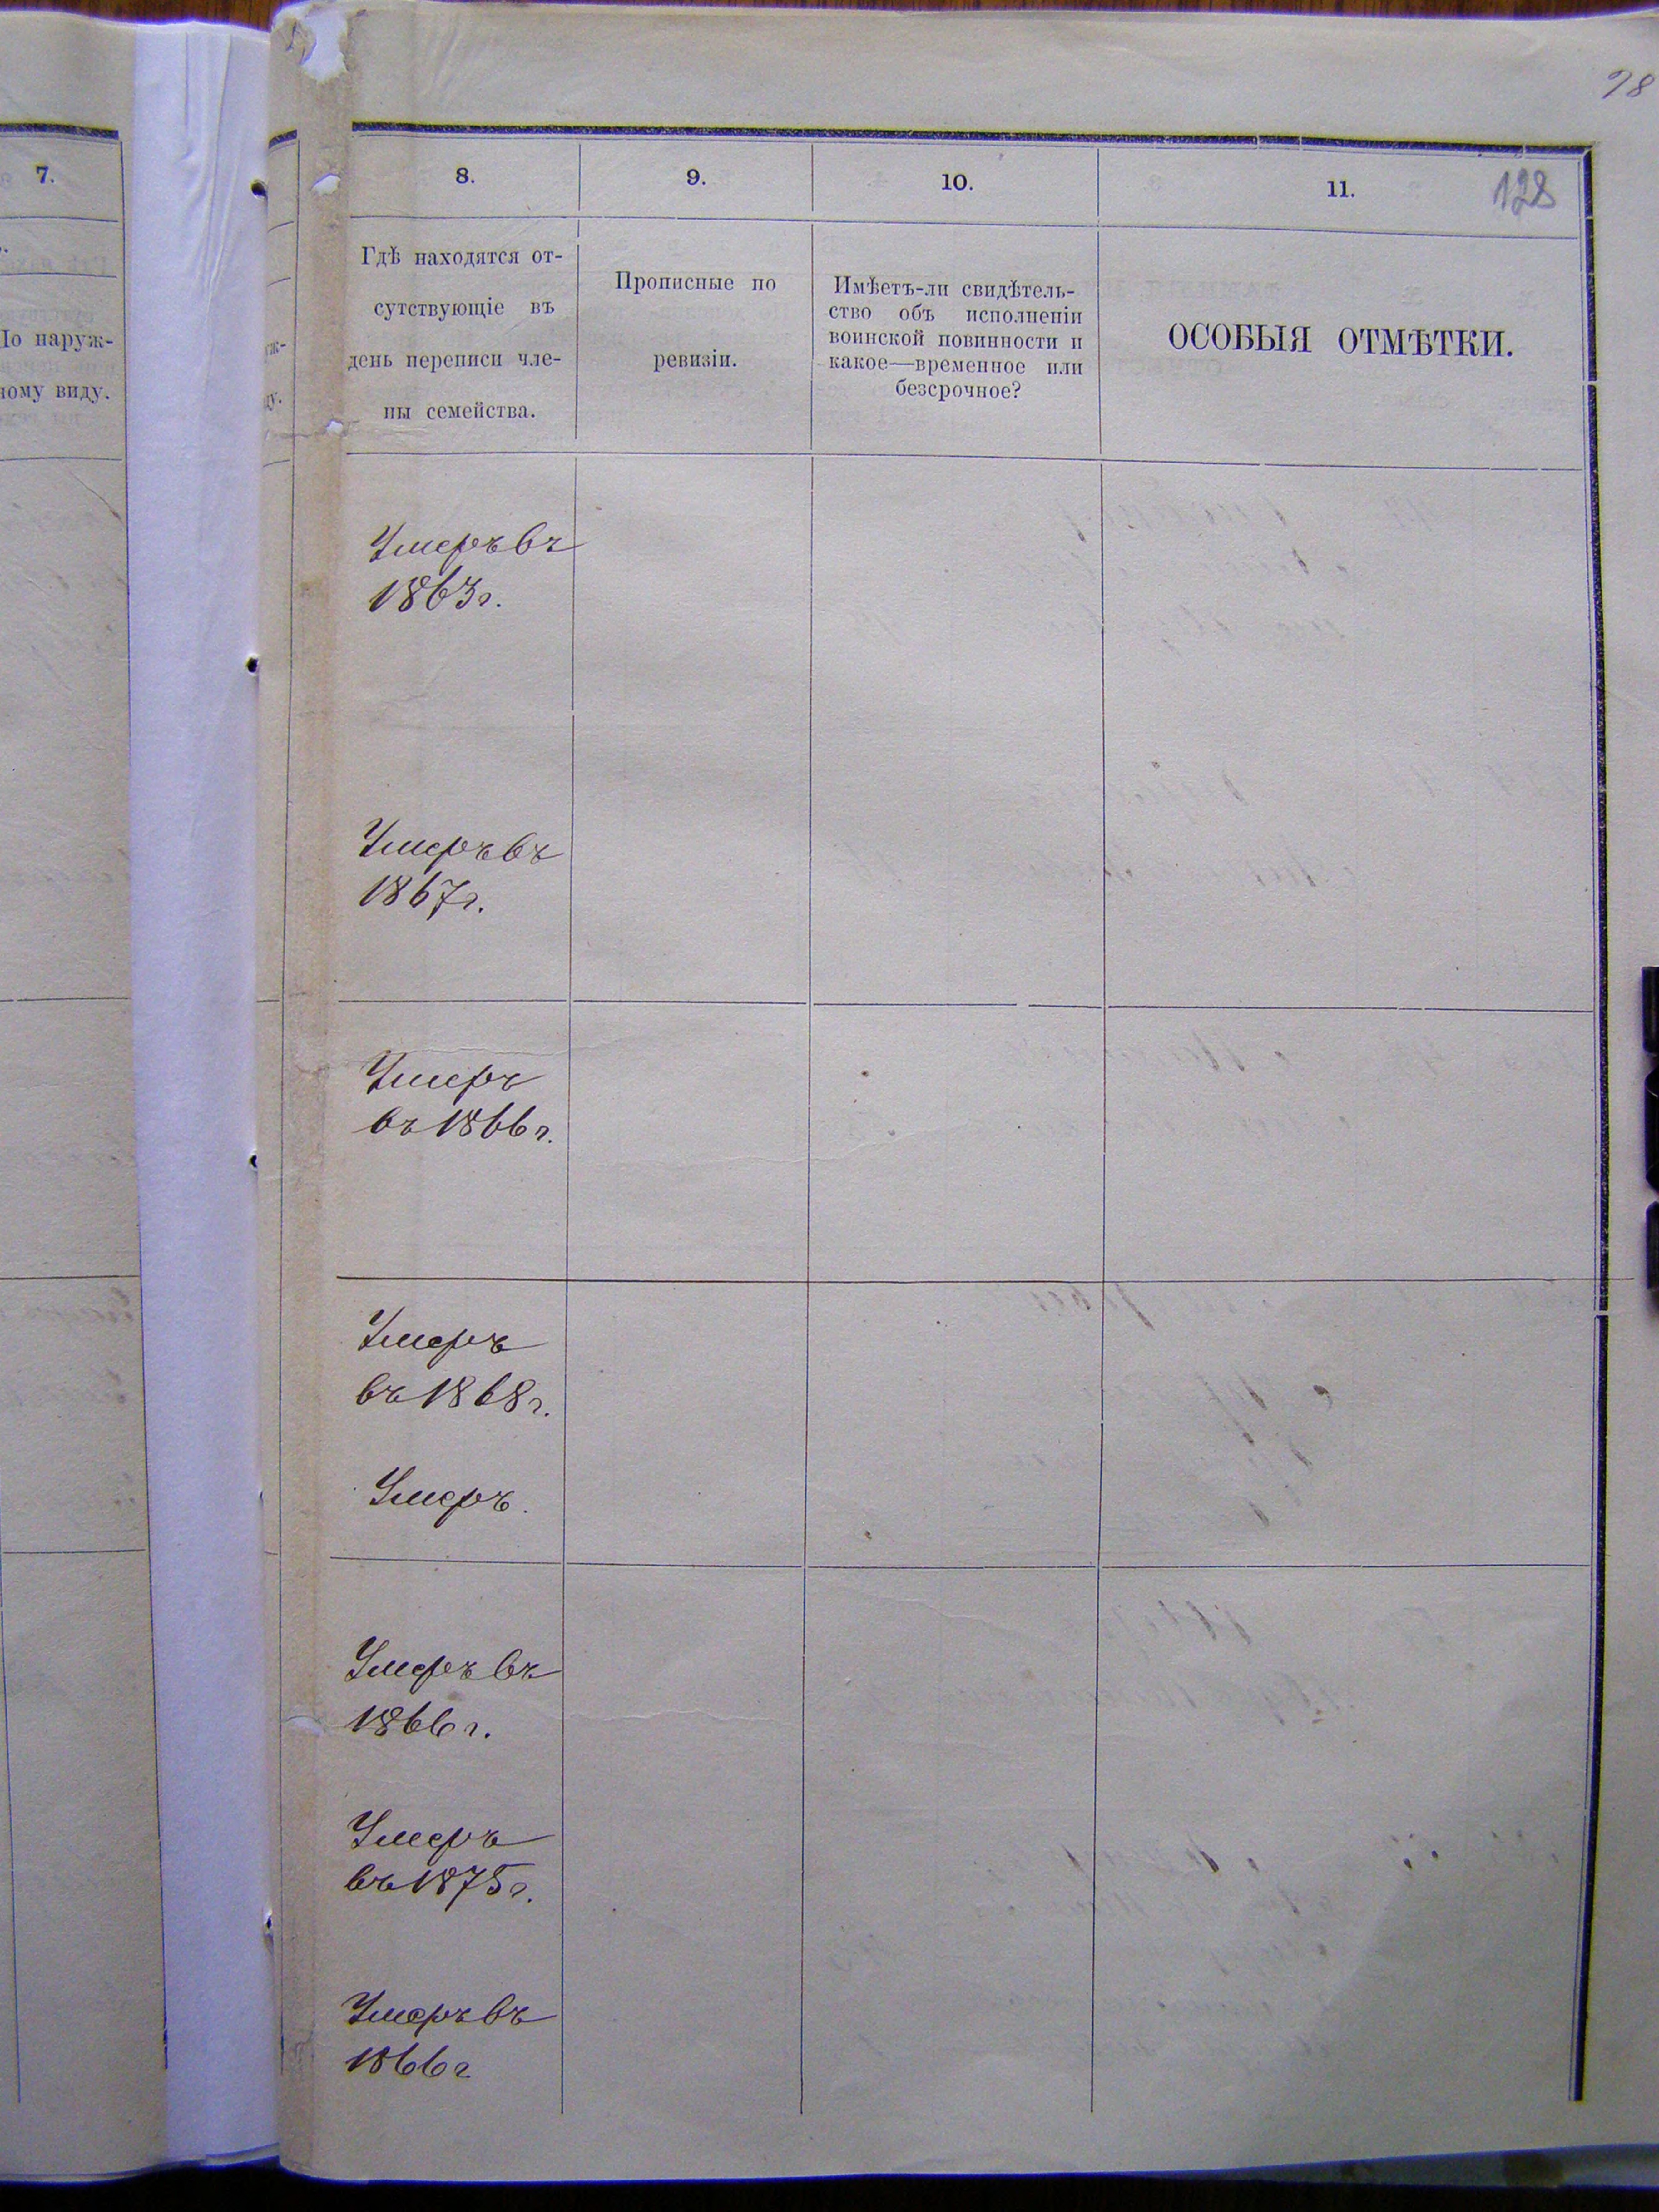 98
7.
До наруж-
ному виду.
8.
9.
10.
11.
128
Гдѣ находятся от-
сутствующіе въ
день переписи чле-
ны семейства.
Прописные по
ревизіи.
Имѣетъ-ли свидѣтель-
ство объ исполненіи
воинской повинности и
какое—временное или
безсрочное?
ОСОБЫЯ ОТМѢТКИ.
Умеръ въ
1863 г.
Умеръ въ
1867 г.
Умеръ
въ 1866 г.
Умеръ
въ 1868 г.
Умеръ.
Умеръ въ
1866 г.
Умеръ
въ 1875 г.
Умеръ въ
1866 г